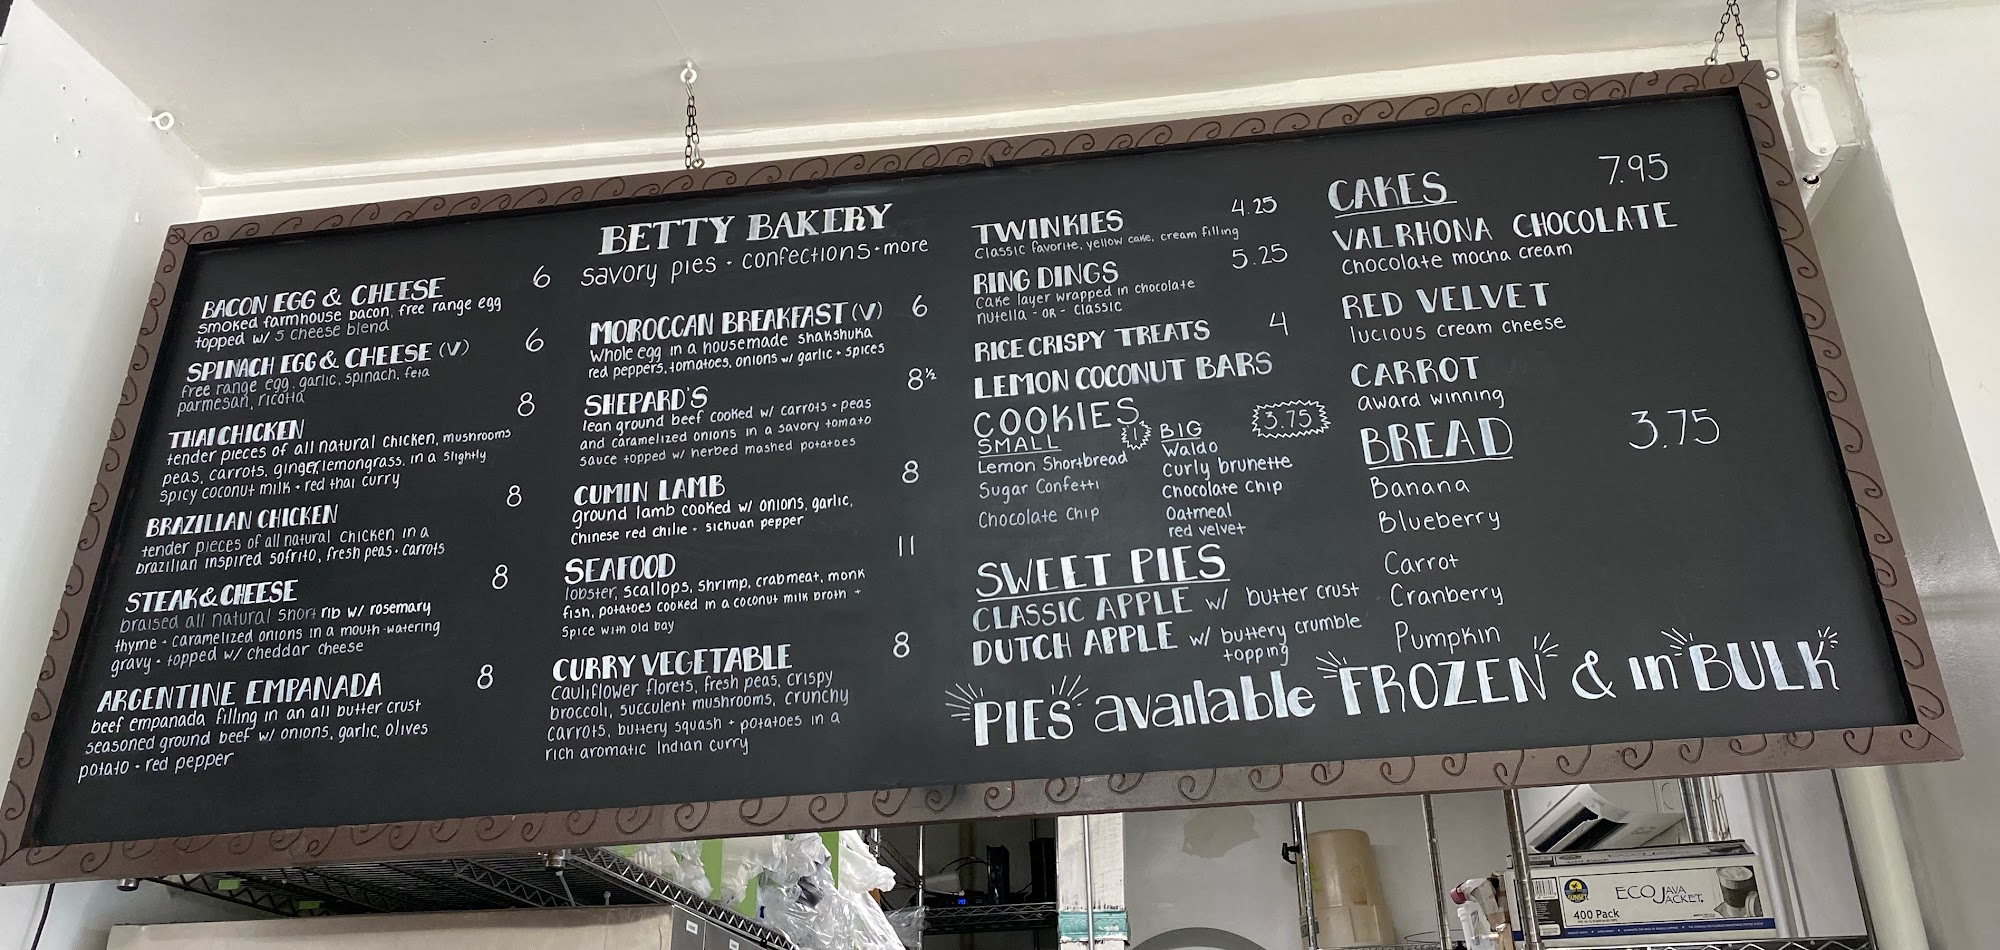 BETTY BAKERY
savory pies · confections + more
BACON EGG & CHEESE 6
smoked farmhouse bacon, free range egg
topped w/ 5 cheese blend
SPINACH EGG & CHEESE (V) 6
free range egg, garlic, spinach, feta
parmesan, ricotta
THAI CHICKEN 8
tender pieces of all natural chicken, mushrooms
peas, carrots, ginger, lemongrass, in a slightly
spicy coconut milk + red thai curry
BRAZILIAN CHICKEN 8
tender pieces of all natural chicken in a
brazilian inspired sofrito, fresh peas + carrots
STEAK & CHEESE 8
braised all natural short rib w/ rosemary
thyme + caramelized onions in a mouth-watering
gravy + topped w/ cheddar cheese
ARGENTINE EMPANADA 8
beef empanada filling in an all butter crust
seasoned ground beef w/ onions, garlic, olives
potato + red pepper
MOROCCAN BREAKFAST (V) 6
whole egg in a housemade shakshuka
red peppers, tomatoes, onions w/ garlic + spices
SHEPARD'S 8½
lean ground beef cooked w/ carrots + peas
and caramelized onions in a savory tomato
sauce topped w/ herbed mashed potatoes
CUMIN LAMB 8
ground lamb cooked w/ onions, garlic,
Chinese red chilie + sichuan pepper
SEAFOOD 11
lobster, scallops, shrimp, crabmeat, monk
fish, potatoes cooked in a coconut milk broth +
spice with old bay
CURRY VEGETABLE 8
cauliflower florets, fresh peas, crispy
broccoli, succulent mushrooms, crunchy
carrots, buttery squash + potatoes in a
rich aromatic Indian curry
TWINKIES 4.25
classic favorite, yellow cake, cream filling
RING DINGS 5.25
cake layer wrapped in chocolate
nutella - OR - classic
RICE CRISPY TREATS 4
LEMON COCONUT BARS
COOKIES
SMALL 1
Lemon Shortbread
Sugar Confetti
Chocolate Chip
BIG 3.75
Waldo
Curly brunette
Chocolate Chip
Oatmeal
red velvet
SWEET PIES
CLASSIC APPLE w/ butter crust
DUTCH APPLE w/ buttery crumble
topping
CAKES 7.95
VALRHONA CHOCOLATE
Chocolate mocha cream
RED VELVET
lucious cream cheese
CARROT
award winning
BREAD 3.75
Banana
Blueberry
Carrot
Cranberry
Pumpkin
PIES available FROZEN & in BULK
ECO JAVA
JACKET
400 Pack